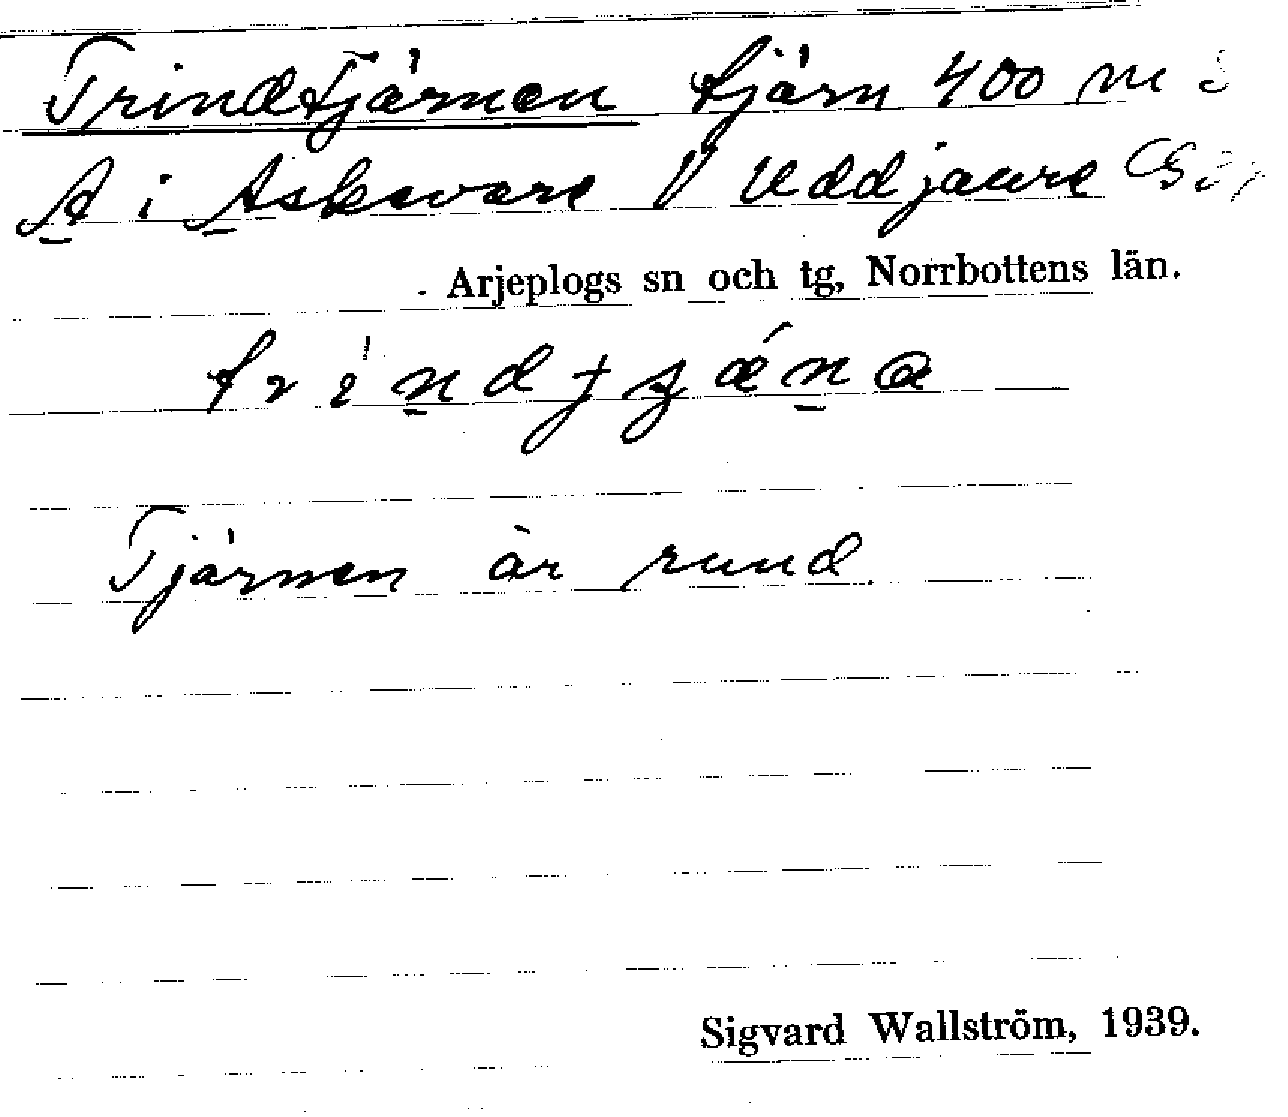 Trindtjärnen tjärn 400 m
A i Askevare V Uddjaure
Arjeplogs sn och tg, Norrbottens län.
Tjärnen är rund
Sigvard Wallström, 1939.